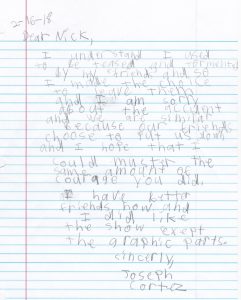 2-16-18
Dear Nick,
I understand I used
to be teased and tormented
by my friends and so
I made the choice
to leave them
and I am sorry
about the accident
and we are similar
because our friends
choose to put us down
and I hope that I
could muster the
same amount of
courage you did.
I have better
friends now and
I did like
the show exept
the graphic parts.
sincerly,
Joseph
Cortez